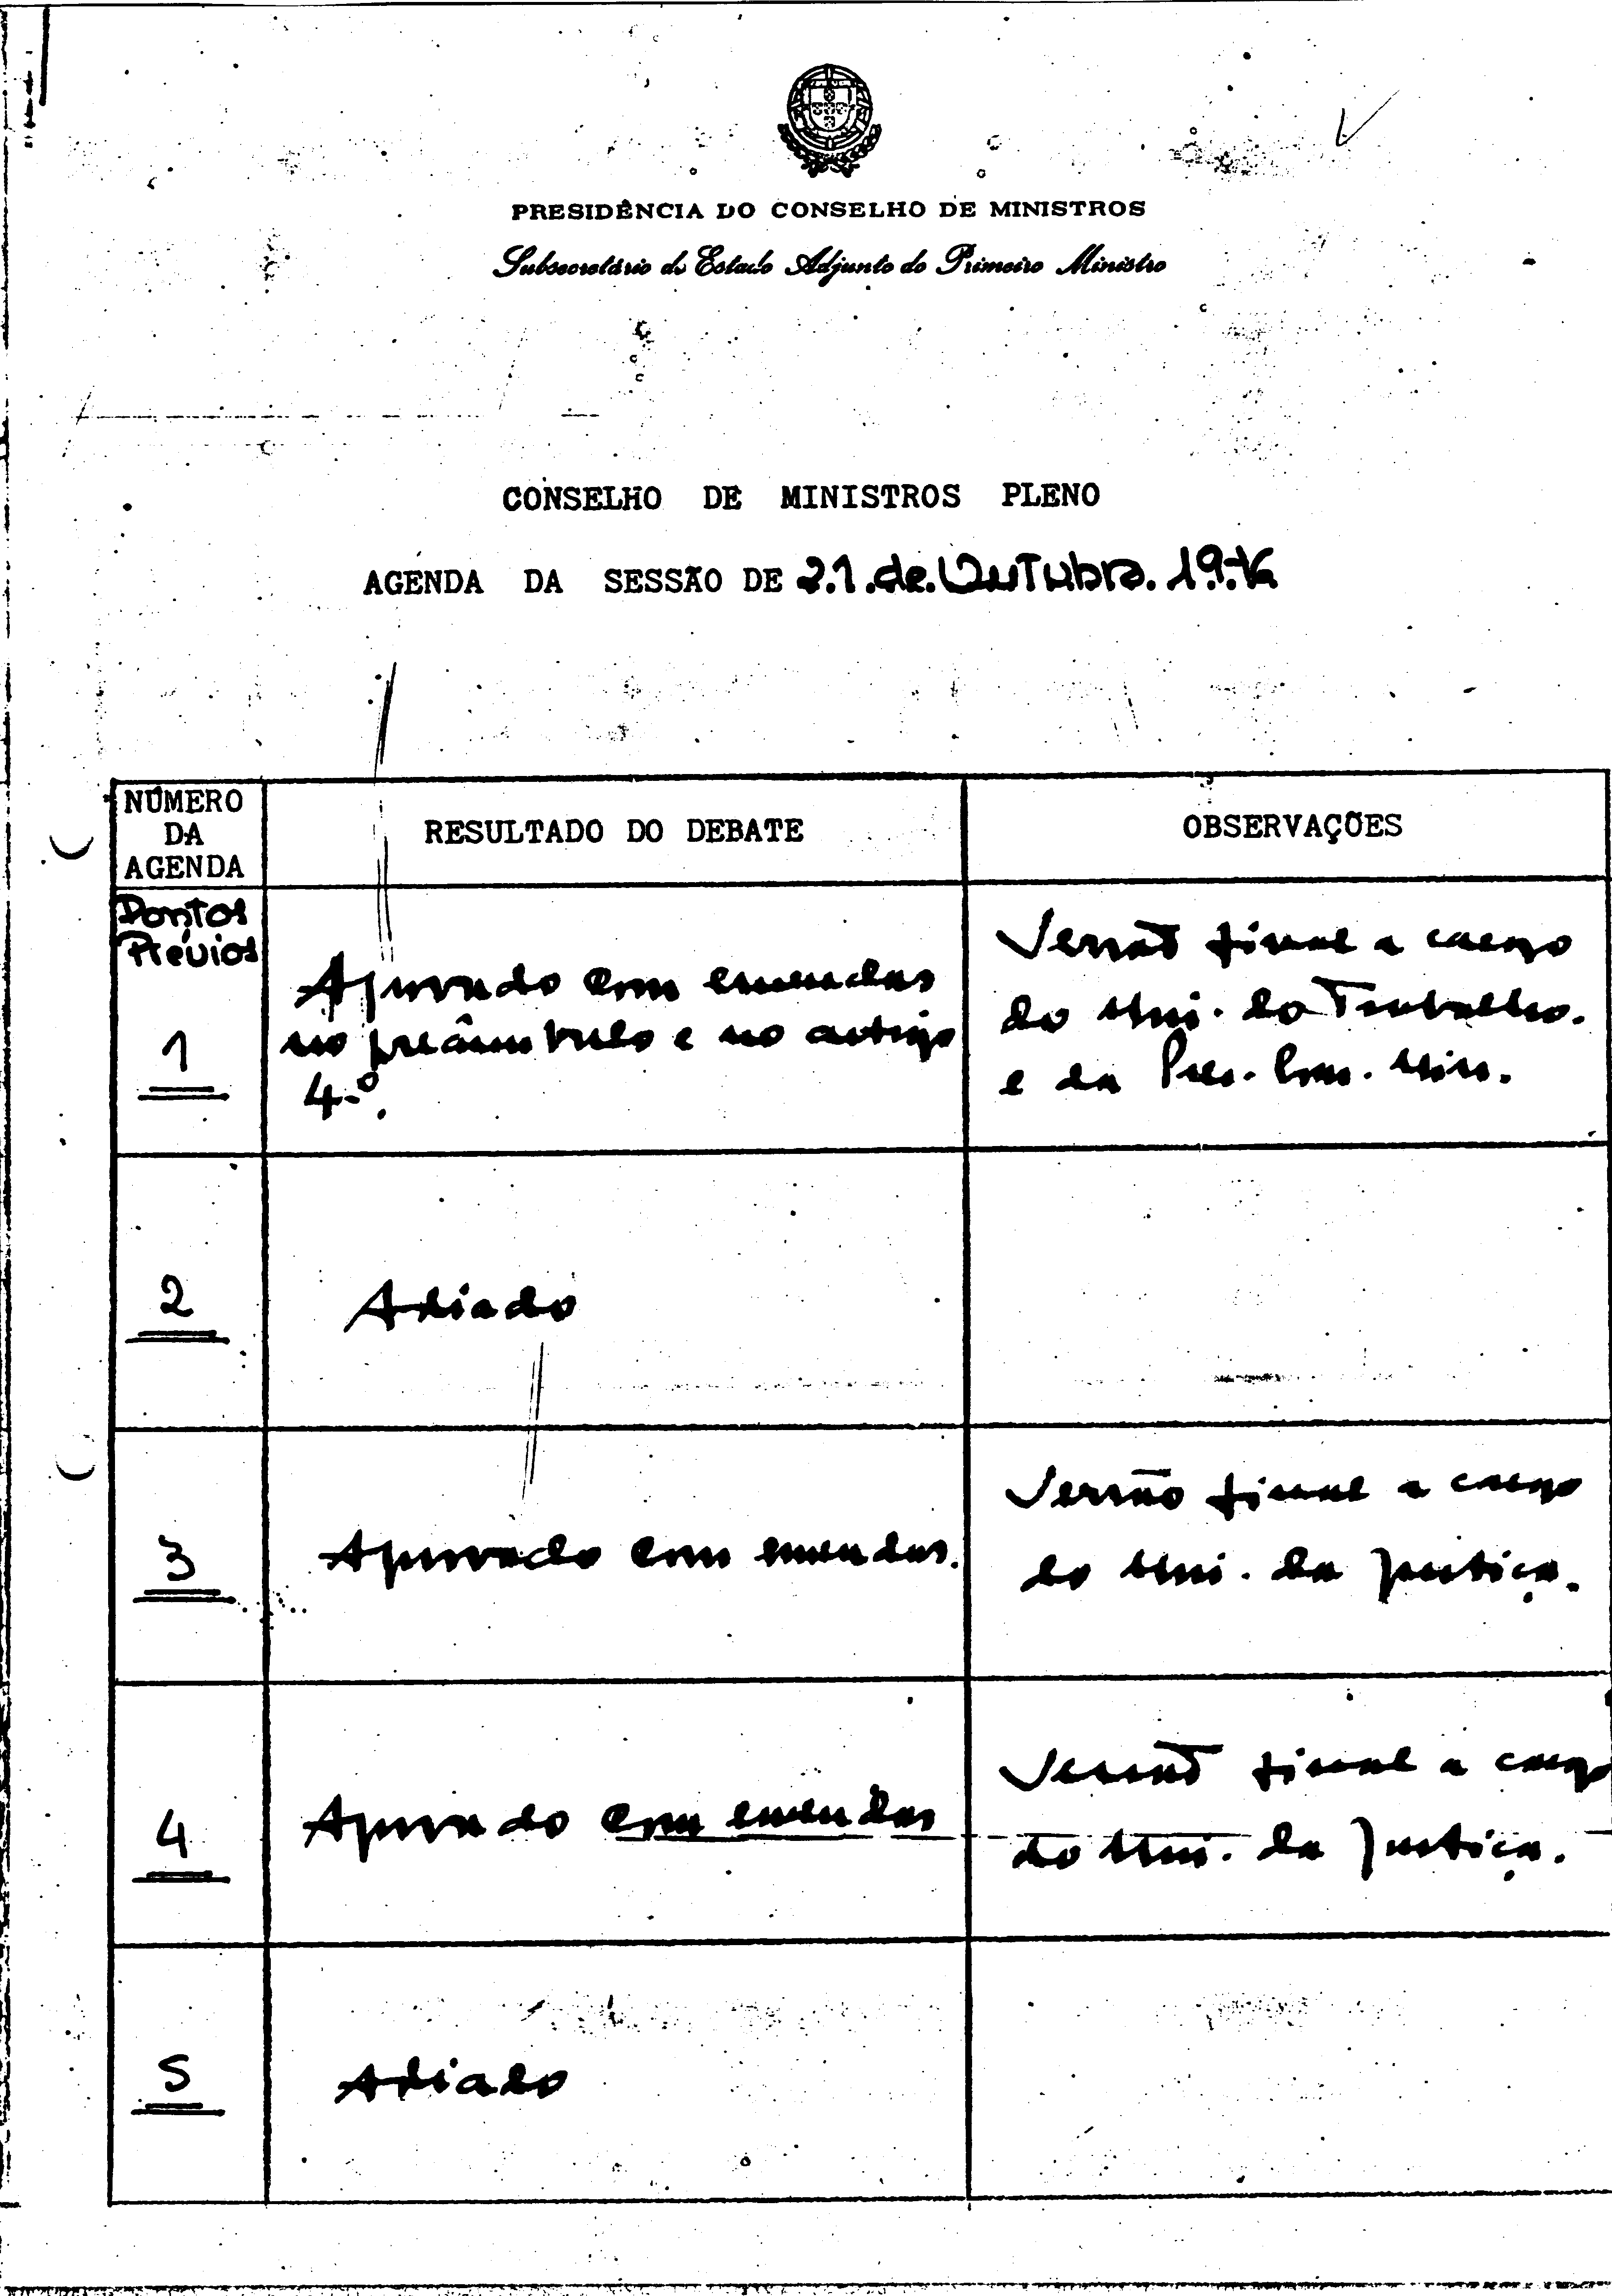 PRESIDÊNCIA DO CONSELHO DE MINISTROS
Subsecretário de Estado Adjunto do Primeiro Ministro
CONSELHO DE MINISTROS PLENO
AGENDA DA SESSÃO DE 21.de.Outubro.1976
NÚMERO
DA
AGENDA
RESULTADO DO DEBATE
OBSERVAÇÕES
Pontos
Prévios
1
Aprovado com emendas
no preâmbulo e no artigo
4.º.
Versão final a cargo
do Min. do Trabalho.
e da Pres. Cons. Min.
2
Adiado
3
Aprovado com emendas.
Versão final a cargo
do Min. da Justiça.
4
Aprovado com emendas
Versão final a cargo
do Min. da Justiça.
5
Adiado